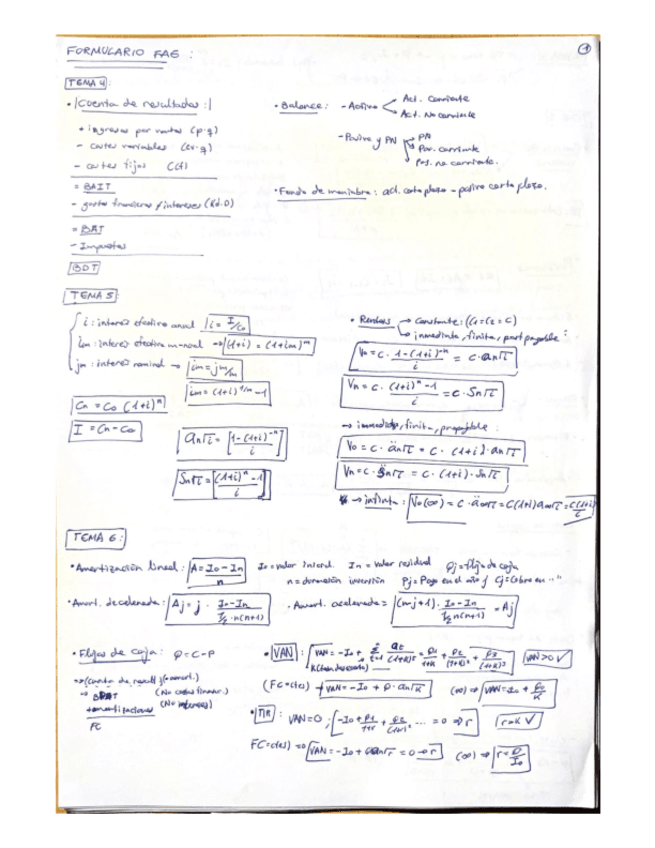 FORMULARIO FAG :
1
TEMA 4 :
• |Cuenta de resultados :|
+ ingresos por ventas (p·q)
- costes variables (cv·q)
- costes fijos (Cf)
= BAIT
- gastos financieros / intereses (Kd·D)
= BAT
- Impuestos
BDT
• Balance : - Activo
Act. Corriente
Act. No corriente
- Pasivo y PN
PN
Pas. corriente
Pas. no corriente.
• Fondo de maniobra : act. corto plazo - pasivo corto plazo.
TEMA 5
i : interes efectivo anual i = I/Co
im : interes efectivo m-anual → (1+i) = (1+im)^m
jm : interes nominal → im = jm/m
im = (1+i)^1/m - 1
Cn = Co (1+i)^n
I = Cn - Co
an¬i = [1-(1+i)^-n / i]
Sn¬i = [(1+i)^n - 1 / i]
• Rentas → Constante : (C1 = C2 = C)
→ inmediata, finita, postpagable :
Vo = C · 1-(1+i)^-n / i = C · an¬i
Vn = C · (1+i)^n - 1 / i = C · Sn¬i
→ inmediata, finita, prepagable :
Vo = C · än¬i = C · (1+i) · an¬i
Vn = C · S̈n¬i = C · (1+i) · Sn¬i
→ infinita : Vo(∞) = C · ä∞¬i = C(1+i) a∞¬i = C(1+i)/i
TEMA 6 :
• Amortización lineal : A = Io - In / n Io = valor inicial. In = valor residual Qj = flujo de caja
n = duración inversión Pj = Pago en el año j Cj = Cobro en "
• Amort. decelerada : Aj = j · Io - In / 1/2 · n(n+1)
• Amort. acelerada = (n-j+1) · Io - In / 1/2 n(n+1) = Aj
• Flujos de caja : Q = C - P
+ amortizaciones
FC
• VAN : VAN = -Io + Σ Qt / (1+K)^t = Q1/1+K + Q2/(1+K)² + Q3/(1+K)³ VAN > 0 ✓
(FC = ctes) → VAN = -Io + Q · an¬K (∞) → VAN = -Io + Q/K
• TIR : VAN = 0 ; -Io + Q1/1+r + Q2/(1+r)² ... = 0 → r r > K ✓
FC = ctes) → VAN = -Io + Q an¬r = 0 → r (∞) → r = Q/Io